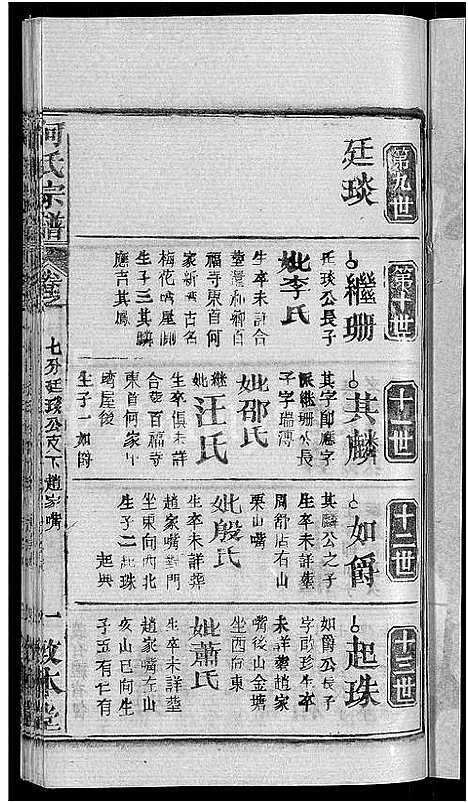 第九世
廷琰
第十世
繼珊
廷琰公長子
妣李氏
生卒未詳合
塋灣和鄉白
福寺東首何
家新
古名
梅花
屋側
生子三其麟
應吉其鳳
十一世
其麟
其字
應字
派繼珊公長
子字瑞溥
妣邵氏
繼妣汪氏
生卒俱未詳
合塋百福寺
東首何家
塆屋後
生子一如爵
十二世
如爵
其麟公之子
生卒未詳塋
周舒店右山
栗山嘴
妣殷氏
生卒未詳葬
趙家嘴對門
坐東向西北
生子二起珠
起興
十三世
起珠
如爵公長子
字
珍生卒
未詳塋趙家
嘴後山金塘
坐西向東
妣蕭氏
生卒未詳塋
趙家嘴左山
亥山已向生
子五有仁有
何氏宗譜
卷之
七分廷琰公支下趙家嘴
一
敦本堂